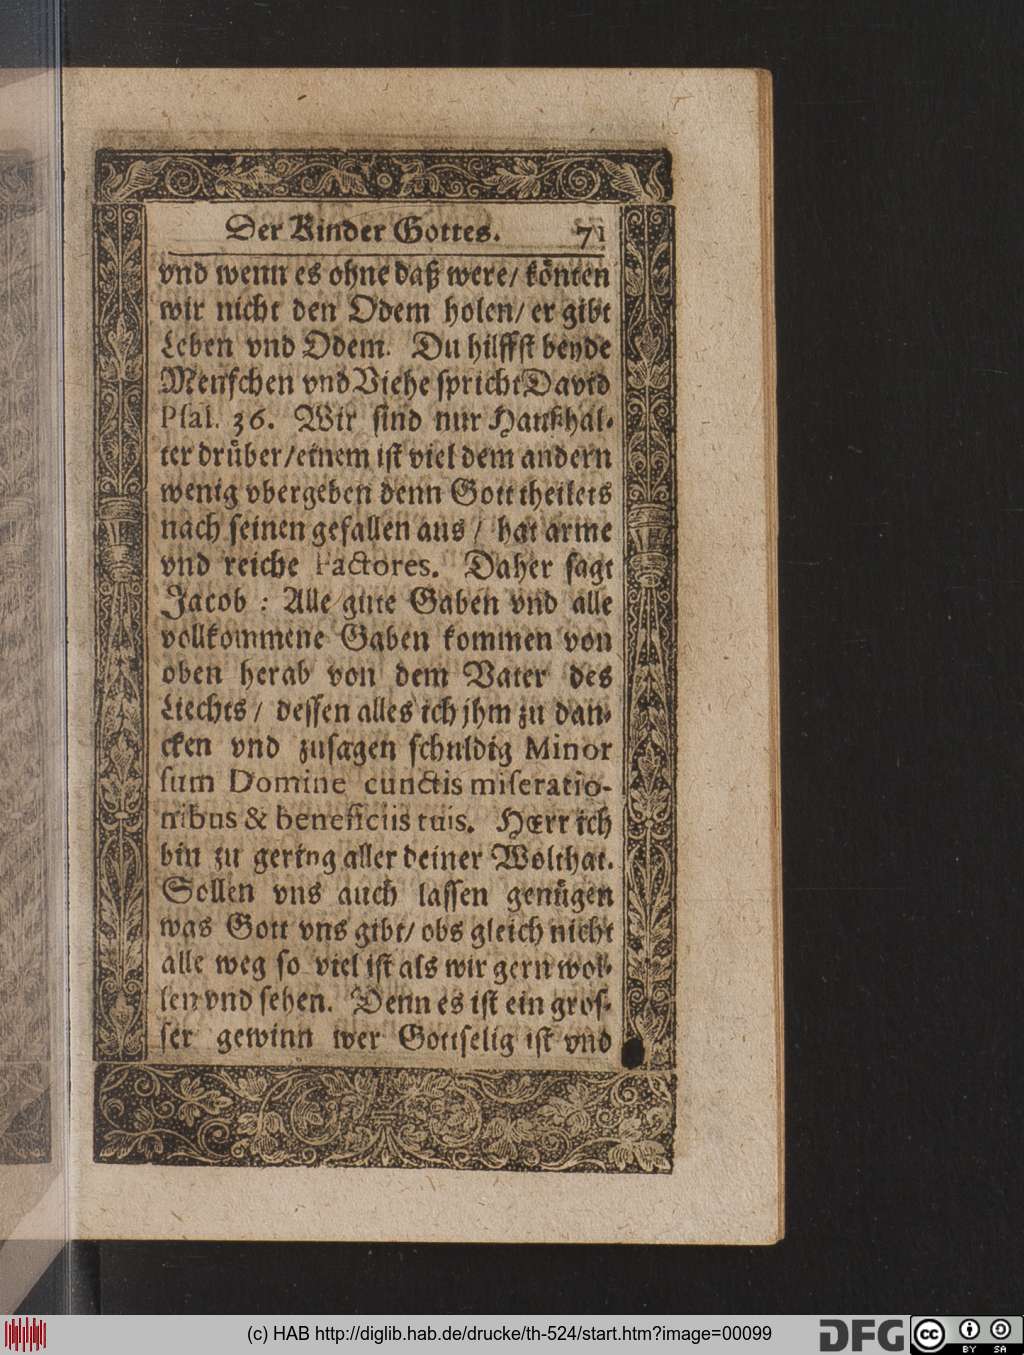 Der Kinder Gottes. 71
vnd wenn es ohne daß were/ koͤnten
wir nicht den Odem holen/ er gibt
Leben vnd Odem. Du hilffſt beyde
Menſchen vnd Viehe ſpricht David
Pſal. 36. Wir ſind nur Haußhal-
ter druͤber/ einem iſt viel dem andern
wenig vbergeben denn Gott theilets
nach ſeinen gefallen aus / hat arme
vnd reiche Factores. Daher ſagt
Jacob : Alle gute Gaben vnd alle
vollkommene Gaben kommen von
oben herab von dem Vater des
Liechts / deſſen alles ich jhm zu dan-
cken vnd zuſagen ſchuldig Minor
ſum Domine cunctis miſeratio-
nibus & beneficiis tuis. HErr ich
bin zu gering aller deiner Wolthat.
Sollen vns auch laſſen genuͤgen
was Gott vns gibt/ obs gleich nicht
alle weg ſo viel iſt als wir gern wol-
len vnd ſehen. Denn es iſt ein groſ-
ſer gewinn wer Gottſelig iſt vnd
(c) HAB http://diglib.hab.de/drucke/th-524/start.htm?image=00099
DFG cc BY SA